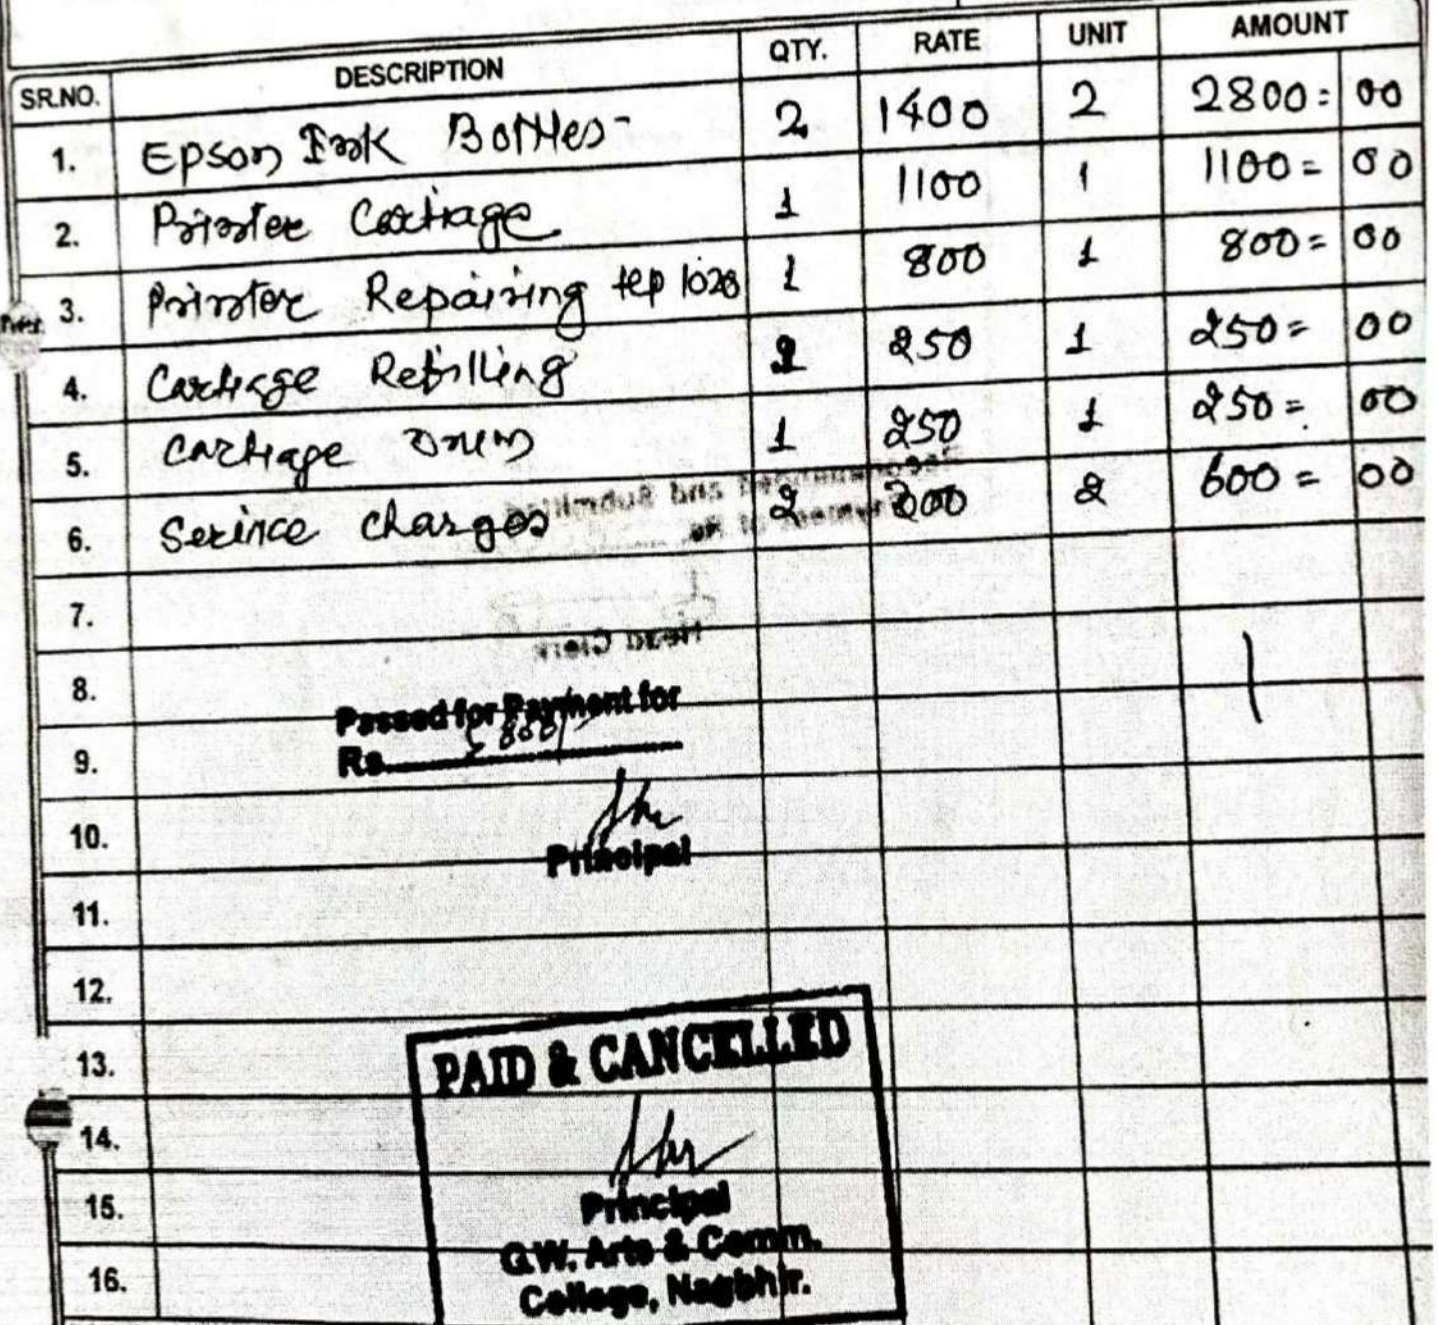 SR.NO. DESCRIPTION QTY. RATE UNIT AMOUNT
1. Epson Ink Bottles- 2 1400 2 2800=00
2. Printer Cartiage 1 1100 1 1100=00
3. Printer Repairing 1 800 1 800=00
4. Cartiage Refilling 1 250 1 250=00
5. Cartiage Drum 1 250 1 250=00
6. Serince charges 2 300 2 600=00
7.
Head Clerk
8.
Passed for Payment for
9. Rs. 5800/-
10.
Principal
11.
12.
13. PAID & CANCELLED
14.
15. Principal
G.W. Arts & Comm.
16. College, Nagbhir.